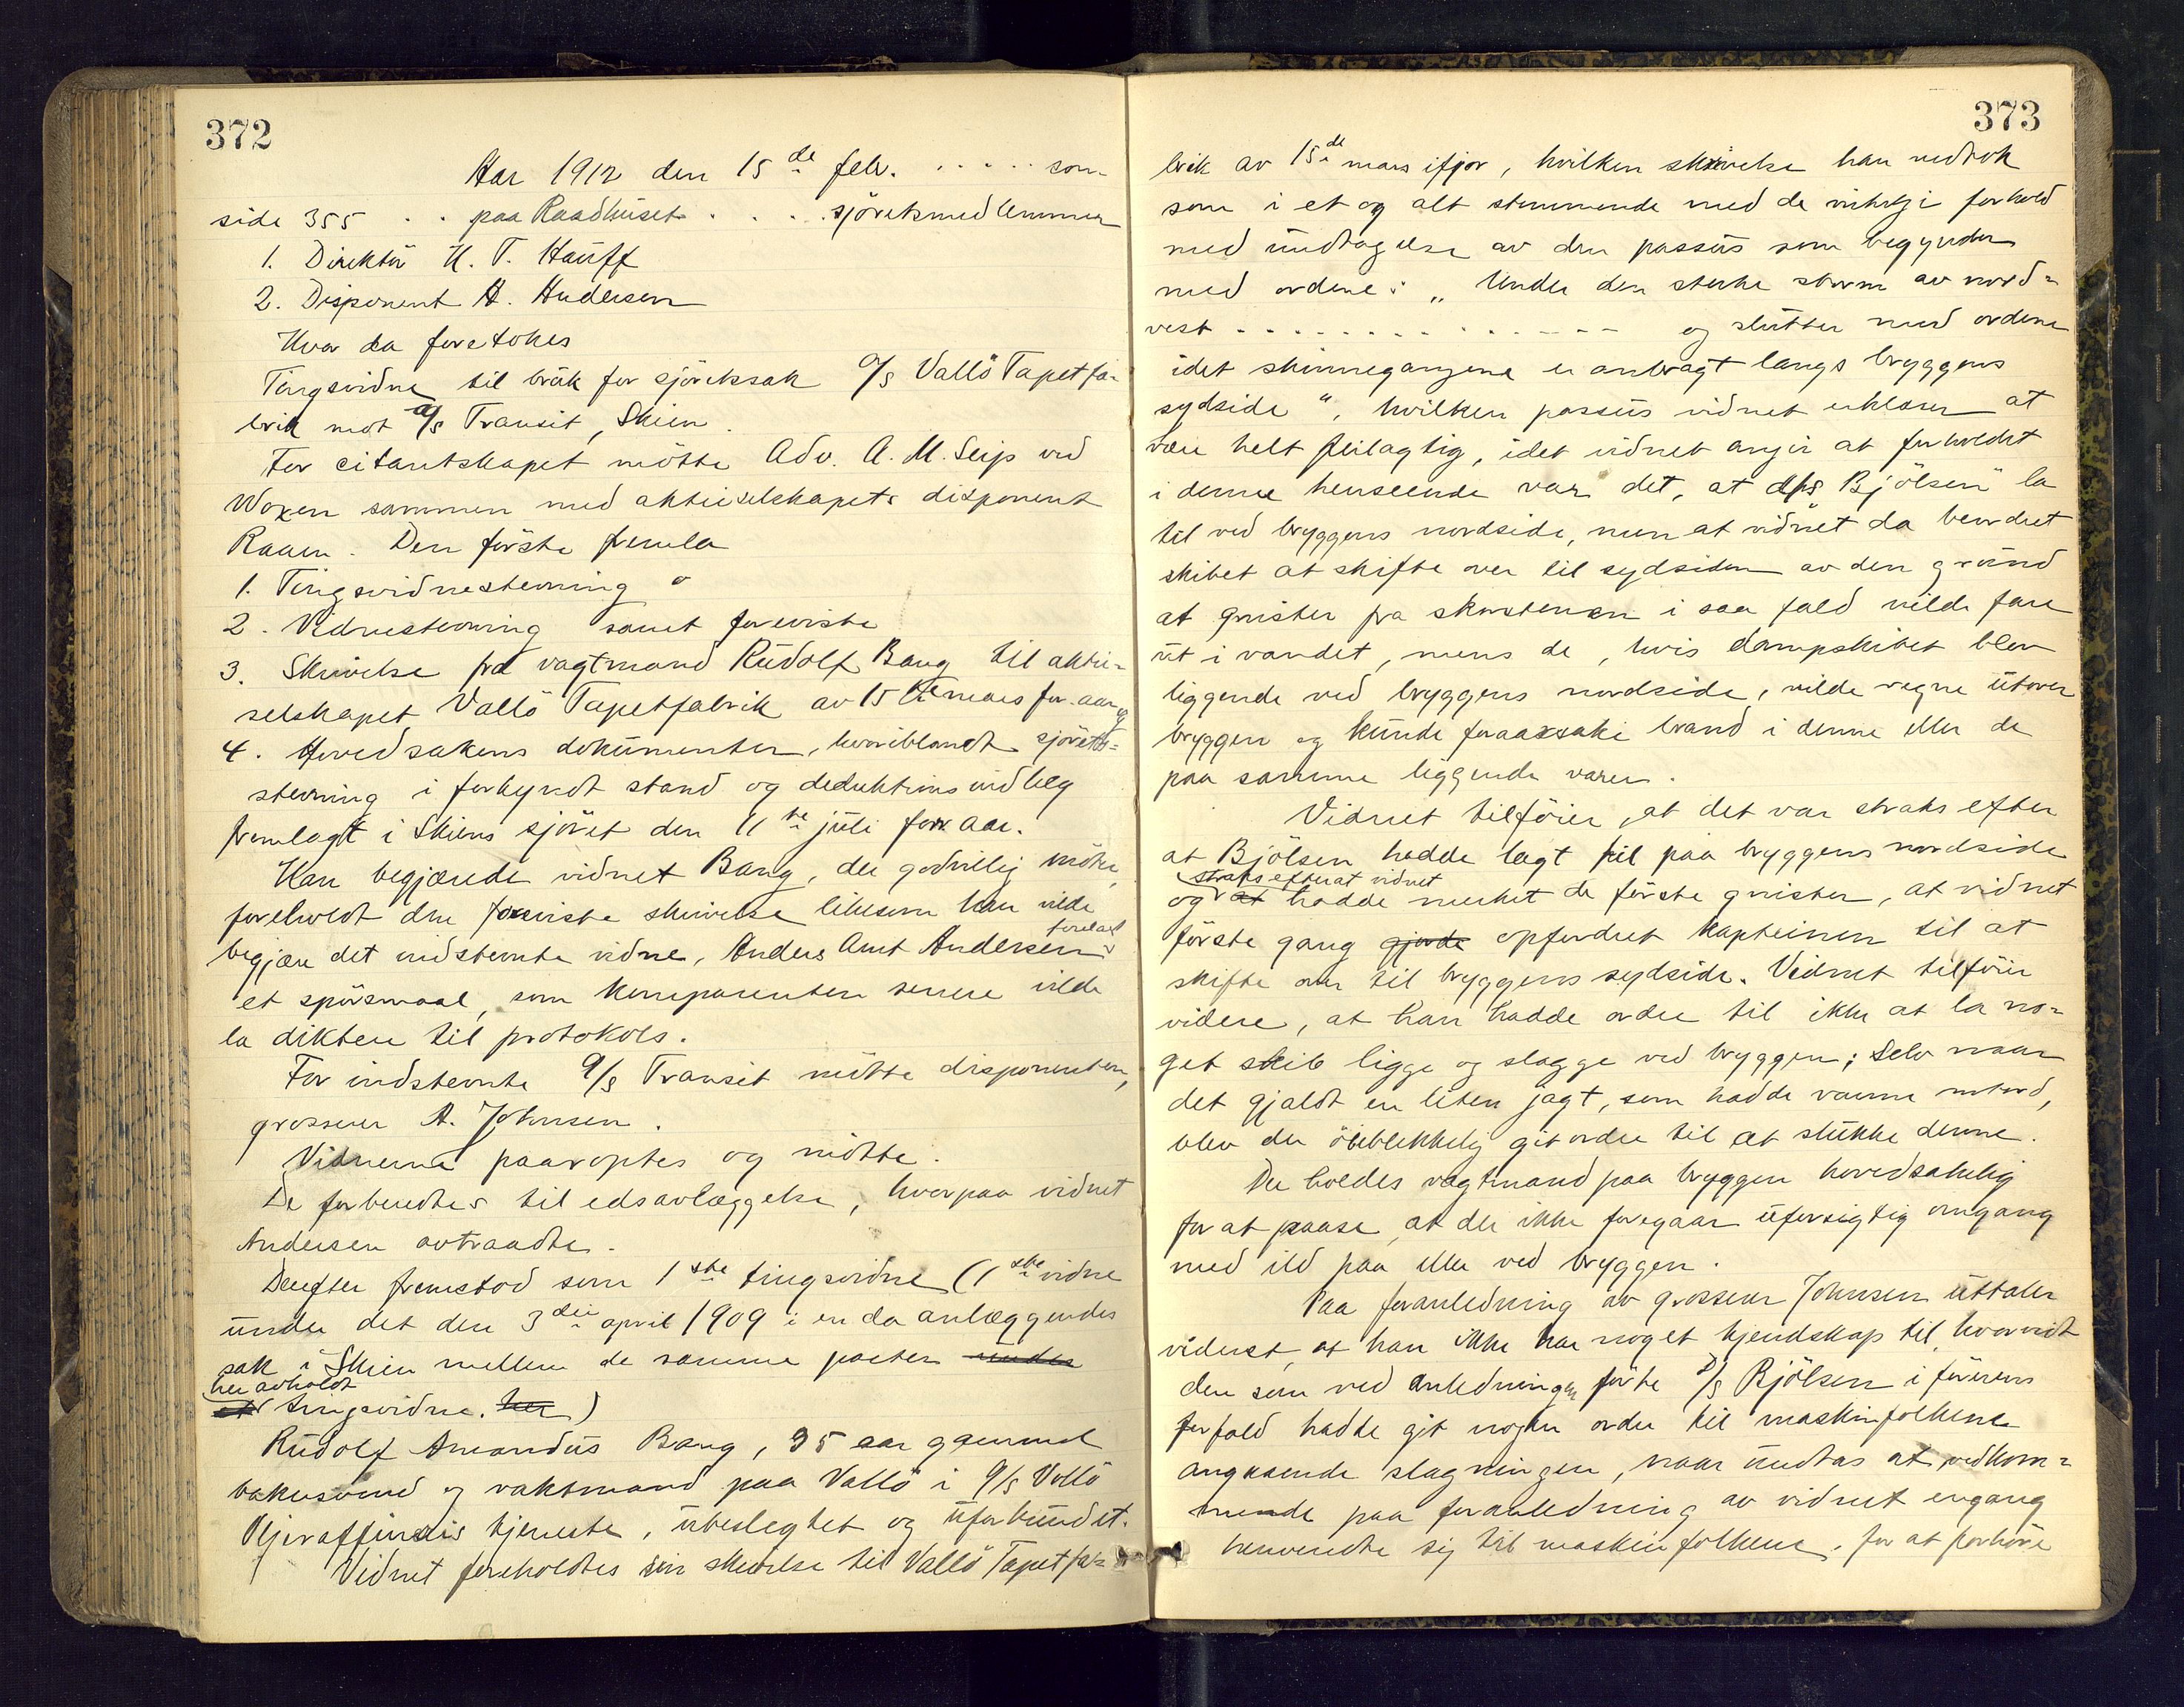 372
Aar 1912 den 15de febr. . . . . . som
side 355 . . paa Raadhuset . . . . sjöretsmedlemmer
1. Direktör H. T. Hauff
2. Disponent H. Andersen
Hvor da foretokes
Tingsvidne til bruk for sjöretssak A/S Vallö Tapetfa-
brik mot A/S Transit, Skien.
For citantskapet mötte Adv. A. M. Seip ved
Woxen sammen med aktieselskapets disponent
Raaen. Den förste fremla
1. Tingsvidnestevning o
2. Vidnestevning samt foreviste
3. Skrivelse fra vagtmand Rudolf Bang til aktie-
selskapet Vallö Tapetfabrik av 15de mars for. aar og
4. Hovedsakens dokumenter, hvoriblandt sjörets-
stevning i forkyndt stand og deduktionsindlæg
fremlagt i Skiens sjöret den 11te juli forr. aar.
Han begjærede vidnet Bang, der godvillig mötte,
foreholdt den foreviste skrivelse likesom han vilde
begjære det indstevnte vidne, Anders Amt Andersen forelagt
et spörsmaal, som komparenten senere vilde
la diktere til protokols.
For indstevnte A/S Transit mötte disponenten,
grosserer A. Johnsen.
Vidnerne paaroptes og mötte.
De forberedtes til edsavlæggelse, hvorpaa vidnet
Andersen avtraadte.
Derefter fremstod som 1ste tingsvidne (1ste vidne
under det den 3die april 1909 i en da anlæggendes
sak i Skien mellem de samme parter under
her avholdt
et tingsvidne. her)
Rudolf Amandus Bang, 35 aar gammel
bakersvend og vaktmand paa Vallö i A/S Vallö
Oljeraffineris tjeneste, ubeslegtet og uforbundet.
Vidnet foreholdtes sin skrivelse til Vallö Tapetfa-
373
brik av 15de mars ifjor, hvilken skrivelse han vedtok
som i et og alt stemmende med de virkelige forhold
med undtagelse av den passus som begynder
med ordene: „Under den sterke storm av nord-
vest - - - - - - - - - - - - og slutter med ordene
idet skinnegangene er anbragt langs bryggens
sydside“, hvilken passus vidnet erklærer at
være helt feilagtig, idet vidnet angir at forholdet
i denne henseende var det, at d/s Bjölsen la
til ved bryggens nordside, men at vidnet da beordret
skibet at skifte over til sydsiden av den grund
at gnister fra skorstenen i saa fald vilde fare
ut i vandet, mens de, hvis dampskibet blev
liggende ved bryggens nordside, vilde regne utover
bryggen og kunde foraarsake brand i denne eller de
paa samme liggende varer.
Vidnet tilföier, at det var straks efter
at Bjölsen hadde lagt til paa bryggens nordside
straks efter at vidnet
og at hadde merket de förste gnister, at vidnet
förste gang gjorde opfordret kapteinen til at
skifte over til bryggens sydside. Vidnet tilföier
videre, at han hadde ordre til ikke at la no-
get skib ligge og slagge ved bryggen; selv naar
det gjaldt en liten jagt, som hadde varme ombord,
blev der öieblikkelig git ordre til at slukke denne.
Der holdes vagtmand paa bryggen hovedsakelig
for at paase, at der ikke foregaar uforsigtig omgang
med ild paa eller ved bryggen.
Paa foranledning av grosserer Johnsen uttaler
vidnet, at han ikke har noget kjendskap til, hvorvidt
den som ved anledningen förte D/S Bjölsen i förerens
forfald hadde git nogen ordre til maskinfolkene
angaaende slagningen, naar undtas at vedkom-
mende paa foranledning av vidnet engang
henvendte sig til maskinfolkene for at forhöre